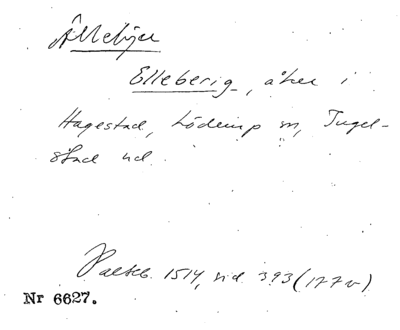 Ällebjer
Elleberig, åker i
Hagestad, Löderup sn, Ingel-
stad hd.
Palteb. 1514, sid. 393 (177 v)
Nr 6627.